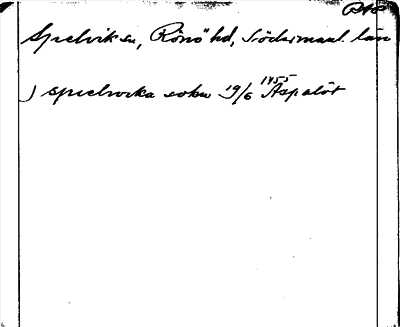 Spelvik sn, Rönö hd, Södermanl. län
J spielwika sokn 19/6 1455 Äspalöt